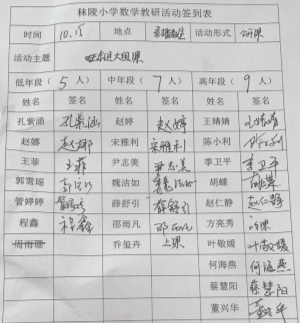 秣陵小学数学教研活动签到表
时间 10.15 地点 活动形式 公开课
活动主题 大组课
低年段（5人） 中年段（7人） 高年段（9人）
姓名 签名 姓名 签名 姓名 签名
孔紫涵 孔紫涵 赵婷 赵婷 王婧婧 王婧婧
赵娜 赵娜 宋雅利 宋雅利 陈小利 陈小利
王菲 王菲 尹志美 尹志美 季卫平 季卫平
郭雪瑶 郭雪瑶 魏洁如 魏洁如 胡蝶 胡蝶
管婷婷 管婷婷 薛舒引 薛舒引 赵仁静 赵仁静
程鑫 程鑫 邵雨凡 邵雨凡 方亮秀
周雨珊 乔玺卉 上课 叶敬媛 叶敬媛
何海燕 何海燕
蔡慧阳 蔡慧阳
董兴华 董兴华